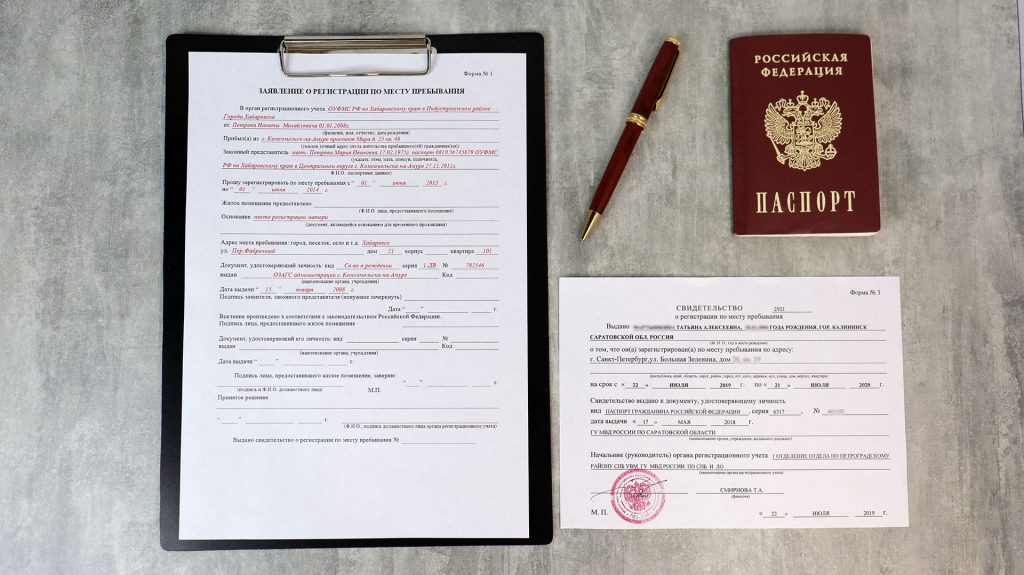 Форма № 1
ЗАЯВЛЕНИЕ О РЕГИСТРАЦИИ ПО МЕСТУ ПРЕБЫВАНИЯ
В орган регистрационного учета ОУФМС РФ по Хабаровскому краю в Индустриальном районе
Города Хабаровска
от Петрова Никиты Михайловича 01.01.2008г.
(фамилия, имя, отчество, дата рождения)
Прибыл(а) из г. Комсомольск-на-Амуре проспект Мира д. 25 кв. 48
(указать точный адрес места жительства прибывшего(ей) гражданина(ки))
Законный представитель мать: Петрова Мария Ивановна 17.02.1975г. паспорт 0810 №745879 ОУФМС
(указать: отец, мать, опекун, попечитель,
РФ по Хабаровскому краю в Центральном округе г. Комсомольска-на-Амуре 27.11.2011г.
Ф.И.О., паспортные данные)
Прошу зарегистрировать по месту пребывания с “ 01 ” июня 2013 г.
по “ 01 ” июня 2014 г.
Жилое помещение предоставлено
(Ф.И.О. лица, предоставившего помещение)
Основание место регистрации матери
(документ, являющийся основанием для временного проживания)
Адрес места пребывания: город, поселок, село и т.д. Хабаровск
ул. Пер.Фабричный дом 21 корпус квартира 101
Документ, удостоверяющий личность: вид Св-во о рождении серия 1-ДВ № 782546
выдан ОЗАГС администрации г. Комсомольска-на-Амуре Код
(наименование органа, учреждения)
Дата выдачи “ 15 ” января 2008 г.
Подпись заявителя, законного представителя (ненужное зачеркнуть)
Дата “ ” г.
Вселение произведено в соответствии с законодательством Российской Федерации.
Подпись лица, предоставившего жилое помещение
Документ, удостоверяющий его личность: вид серия №
выдан Код
(наименование органа, учреждения)
Дата выдачи “ ” г.
Подпись лица, предоставившего жилое помещение, заверяю
“ ” г.
(подпись и Ф.И.О. должностного лица) М.П.
Принятое решение
“ ” г.
(Ф.И.О., подпись должностного лица органа регистрационного учета)
Выдано свидетельство о регистрации по месту пребывания №
РОССИЙСКАЯ
ФЕДЕРАЦИЯ
ПАСПОРТ
Форма № 3
СВИДЕТЕЛЬСТВО 2921
о регистрации по месту пребывания
Выдано ТАТЬЯНА АЛЕКСЕЕВНА, ГОДА РОЖДЕНИЯ, ГОР. КАЛИНИНСК
САРАТОВСКОЙ ОБЛ. РОССИЯ
(Ф. И. О., год и место рождения)
о том, что он(а) зарегистрирован(а) по месту пребывания по адресу:
г. Санкт-Петербург,ул. Большая Зеленина, дом
(республика, край, область, округ, район, город, пгт, село, деревня, аул, улица, дом, корпус, квартира)
на срок с « 22 » ИЮЛЯ 2019 г. по « 21 » ИЮЛЯ 2020 г.
Свидетельство выдано к документу, удостоверяющему личность
вид ПАСПОРТ ГРАЖДАНИНА РОССИЙСКОЙ ФЕДЕРАЦИИ , серия 6317 , №
дата выдачи « 17 » МАЯ 2018 г.
ГУ МВД РОССИИ ПО САРАТОВСКОЙ ОБЛАСТИ
(наименование органа, учреждения, выдавшего документ)
Начальник (руководитель) органа регистрационного учета 1 ОТДЕЛЕНИЕ ОТДЕЛА ПО ПЕТРОГРАДСКОМУ
РАЙОНУ СПБ УВМ ГУ МВД РОССИИ ПО СПБ И ЛО
(наименование органа регистрационного учета)
СМИРНОВА Т.А.
(фамилия)
М. П. « 22 » ИЮЛЯ 2019 г.